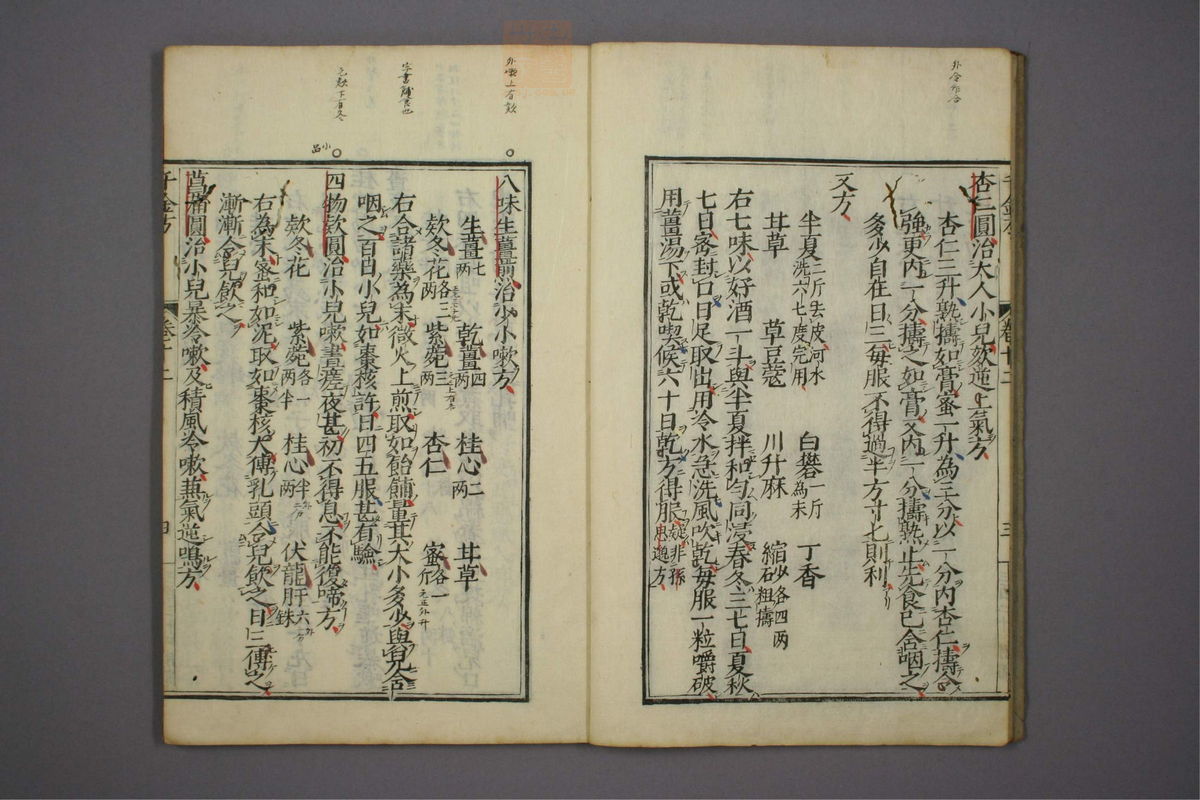 杏仁圓治大人小兒欬逆上氣方
杏仁三升熟擣如膏蜜一升為三分以一分内杏仁擣令
強更内一分擣之如膏又内一分擣熟止先食已含咽之
多少自在日三每服不得過半方寸匕則利
又方
半夏二斤去皮河水洗六七度完用 白礬一斤為末 丁香
甘草 草豆蔻 川升麻 縮砂各四两粗擣
右七味以好酒一斗與半夏拌和勻同浸春冬三七日夏秋
七日密封口日足取出用冷水急洗風吹乾每服一粒嚼破
用薑湯下或乾喫候六十日乾方得服疑非孫思邈方
八味生薑煎治少小嗽方
生薑七两 乾薑四两 桂心二两 甘草
欵冬花各三两 紫菀三两 杏仁 蜜各一斤
右合諸藥為末微火上煎取如飴餔量其大小多少與兒含
咽之百日小兒如棗核許日四五服甚有驗
四物欵圓治小兒嗽晝瘥夜甚初不得息不能復啼方
欵冬花 紫菀各一两半 桂心半两 伏龍肝六銖
右為末蜜和如泥取如棗核大傅乳頭令兒飲之日三傅之
漸漸令兒飲之
菖蒲圓治小兒暴冷嗽及積風冷嗽兼氣逆鳴方
千金方 卷十二 四